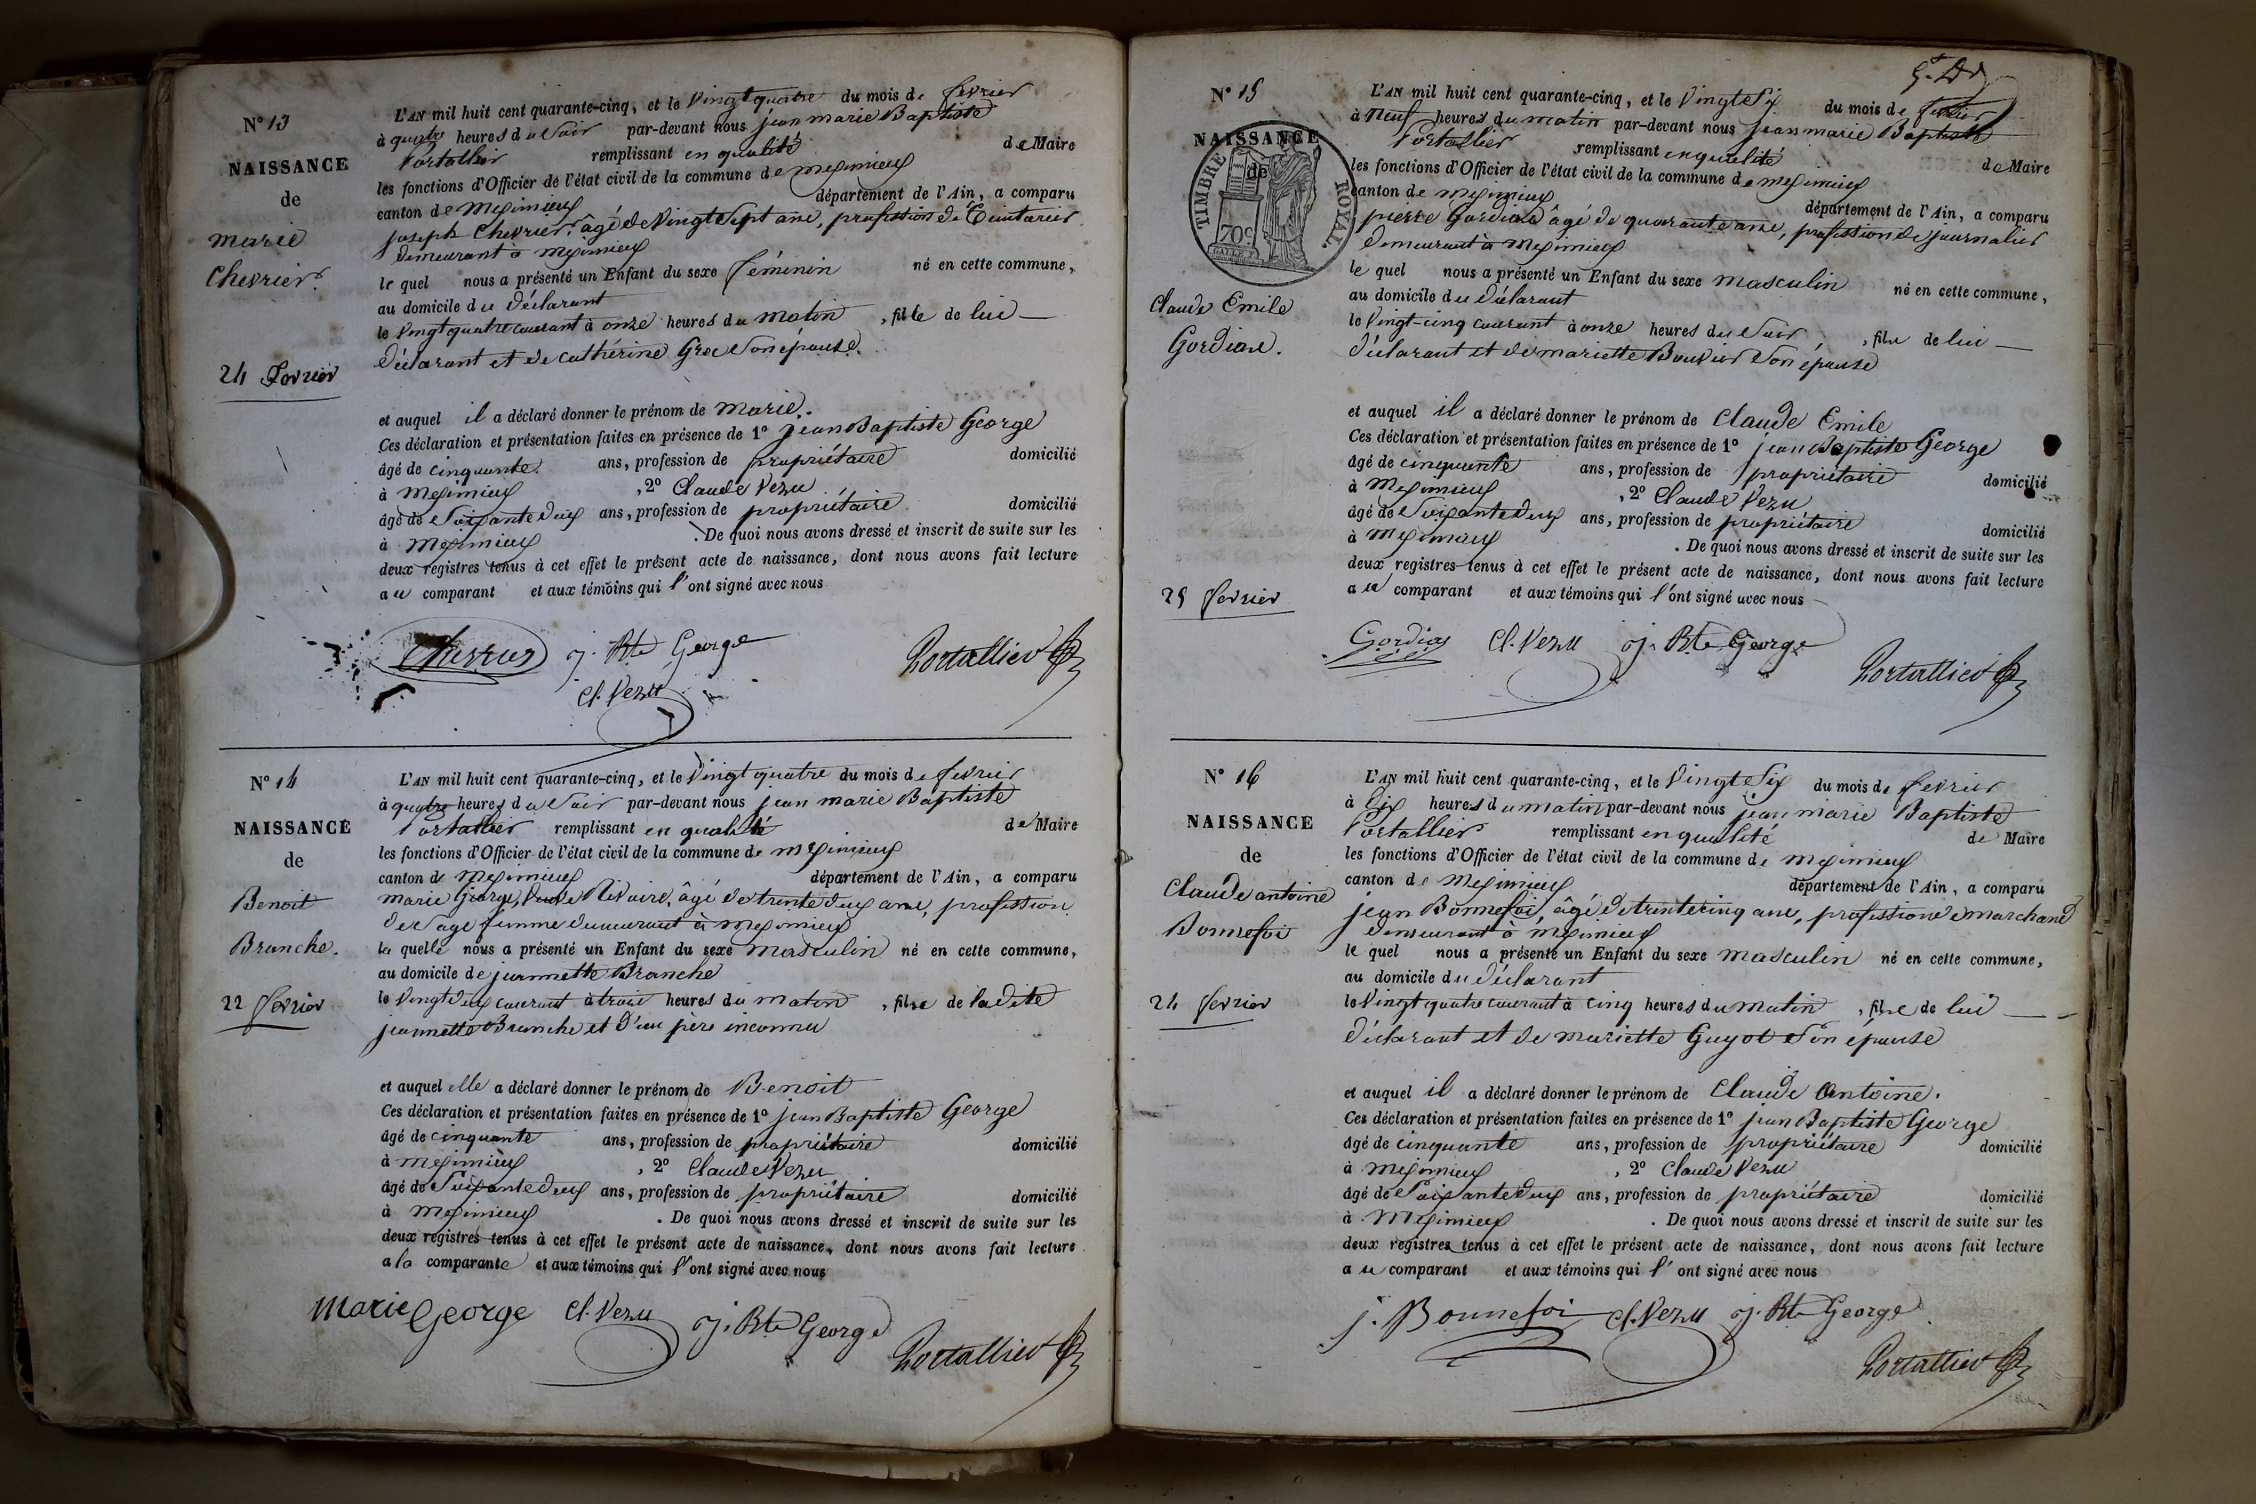 N° 13
NAISSANCE
de
marie
Chevrier.
24 Fevrier
L'AN mil huit cent quarante-cinq, et le Vingt quatre du mois de fevrier
à quatre heures du Soir par-devant nous jean marie Baptiste
Portallier remplissant en qualité de Maire
les fonctions d'Officier de l'état civil de la commune de meximieux
canton de Meximieux département de l'Ain, a comparu
joseph Chevrier âgé de Vingt Sept ans, profession de
demeurant à meximieux
le quel nous a présenté un Enfant du sexe féminin né en cette commune,
au domicile du déclarant
le Vingt quatre courant à onze heures du matin, fille de lui —
déclarant et de cathérine Gros Son épouse.
et auquel il a déclaré donner le prénom de marie.
Ces déclaration et présentation faites en présence de 1° jean Baptiste George
âgé de cinquante ans, profession de propriétaire domicilié
à Meximieux, 2° Claude Vezu
âgé de Soixante deux ans, profession de propriétaire domicilié
à Meximieux. De quoi nous avons dressé et inscrit de suite sur les
deux registres tenus à cet effet le présent acte de naissance, dont nous avons fait lecture
au comparant et aux témoins qui l'ont signé avec nous
Chevrier j. Bte George Portallier
Cl. Vezu
N° 14
NAISSANCE
de
Benoit
Branche.
22 fevrier
L'AN mil huit cent quarante-cinq, et le Vingt quatre du mois de fevrier
à quatre heures du Soir par-devant nous jean marie Baptiste
Portallier remplissant en qualité de Maire
les fonctions d'Officier de l'état civil de la commune de meximieux
canton de Meximieux département de l'Ain, a comparu
marie George, âgé de trente deux ans, profession
de Sage femme demeurant à meximieux
la quelle nous a présenté un Enfant du sexe masculin né en cette commune,
au domicile de jeannette Branche
le Vingt deux courant à trois heures du matin, fils de ladite
jeannette Branche et d'un père inconnu
et auquel elle a déclaré donner le prénom de Benoit
Ces déclaration et présentation faites en présence de 1° jean Baptiste George
âgé de cinquante ans, profession de propriétaire domicilié
à meximieux, 2° Claude Vezu
âgé de Soixante deux ans, profession de propriétaire domicilié
à meximieux. De quoi nous avons dressé et inscrit de suite sur les
deux registres tenus à cet effet le présent acte de naissance, dont nous avons fait lecture
a la comparante et aux témoins qui l'ont signé avec nous
Marie George Cl. Vezu j. Bte George
Portallier
N° 15
NAISSANCE
de
TIMBRE ROYAL
70c
Claude Emile
Gordian.
25 fevrier
L'AN mil huit cent quarante-cinq, et le Vingt Six du mois de fevrier
à Neuf heures du matin par-devant nous jean marie Baptiste
Portallier remplissant en qualité de Maire
les fonctions d'Officier de l'état civil de la commune de meximieux
canton de meximieux département de l'Ain, a comparu
pierre Gordian âgé de quarante ans, profession de journalier
demeurant à Meximieux
le quel nous a présenté un Enfant du sexe masculin né en cette commune,
au domicile du déclarant
le Vingt-cinq courant à onze heures du Soir, fils de lui —
déclarant et de mariette Bouvier Son épouse
et auquel il a déclaré donner le prénom de Claude Emile
Ces déclaration et présentation faites en présence de 1° jean Baptiste George
âgé de cinquante ans, profession de propriétaire domicilié
à Meximieux, 2° Claude Vezu
âgé de Soixante deux ans, profession de propriétaire domicilié
à Meximieux. De quoi nous avons dressé et inscrit de suite sur les
deux registres tenus à cet effet le présent acte de naissance, dont nous avons fait lecture
au comparant et aux témoins qui l'ont signé avec nous
Cl. Vezu j. Bte George
Portallier
N° 16
NAISSANCE
de
Claude antoine
Bonnefoi
24 fevrier
L'AN mil huit cent quarante-cinq, et le Vingt Six du mois de fevrier
à Dix heures du matin par-devant nous jean marie Baptiste
Portallier remplissant en qualité de Maire
les fonctions d'Officier de l'état civil de la commune de meximieux
canton de Meximieux département de l'Ain, a comparu
jean Bonnefoi, âgé de trente cinq ans, profession de marchand
demeurant à meximieux
le quel nous a présenté un Enfant du sexe masculin né en cette commune,
au domicile du déclarant
le Vingt quatre courant à cinq heures du matin, fils de lui —
déclarant et de mariette Guyot Son épouse
et auquel il a déclaré donner le prénom de Claude Antoine.
Ces déclaration et présentation faites en présence de 1° jean Baptiste George
âgé de cinquante ans, profession de propriétaire domicilié
à meximieux, 2° Claude Vezu
âgé de Soixante deux ans, profession de propriétaire domicilié
à Meximieux. De quoi nous avons dressé et inscrit de suite sur les
deux registres tenus à cet effet le présent acte de naissance, dont nous avons fait lecture
au comparant et aux témoins qui l'ont signé avec nous
j. Bonnefoi Cl. Vezu j. Bte George
Portallier